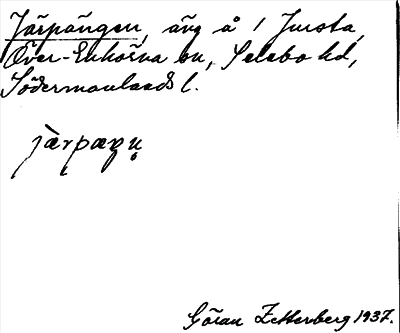 Järpängen, äng å 1 Jursta,
Över-Enhörna sn, Selebo hd,
Södermanlands l.
Göran Zetterberg 1937.